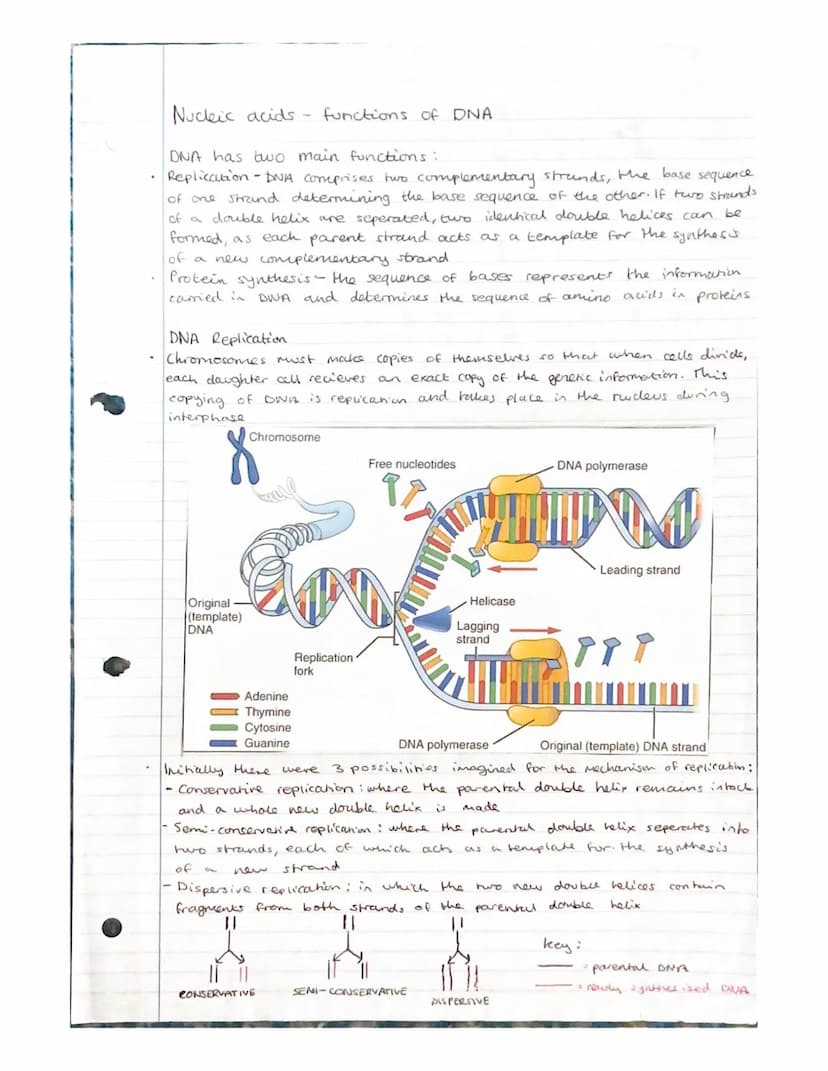 Nucleic acids - functions of DNA
DNA has two main functions:
• Replication - DNA comprises two complementary strands, the base sequence
of one strand determining the base sequence of the other. If two strands
of a double helix are seperated, two identical double helices can be
formed, as each parent strand acts as a template for the synthesis
of a new complementary strand
• Protein synthesis - the sequence of bases represents the information
carried in DNA and determines the sequence of amino acids in proteins
DNA Replication
• Chromosomes must make copies of themselves so that when cells divide,
each daughter cell recieves an exact copy of the genetic information. This
copying of DNA is replication and takes place in the nucleus during
interphase
Chromosome
Free nucleotides
DNA polymerase
Leading strand
Original
(template)
DNA
Helicase
Lagging
strand
Replication
fork
Adenine
Thymine
Cytosine
Guanine
DNA polymerase
Original (template) DNA strand
• Initially there were 3 possibilities imagined for the mechanism of replication:
- Conservative replication: where the parental double helix remains intact
and a whole new double helix is made
- Semi-conservative replication: where the parental double helix seperates into
two strands, each of which acts as a template for the synthesis
of a new strand
- Dispersive replication: in which the two new double helices contain
fragments from both strands of the parental double helix
key:
= parental DNA
= newly synthesised DNA
CONSERVATIVE
SEMI-CONSERVATIVE
DISPERSIVE